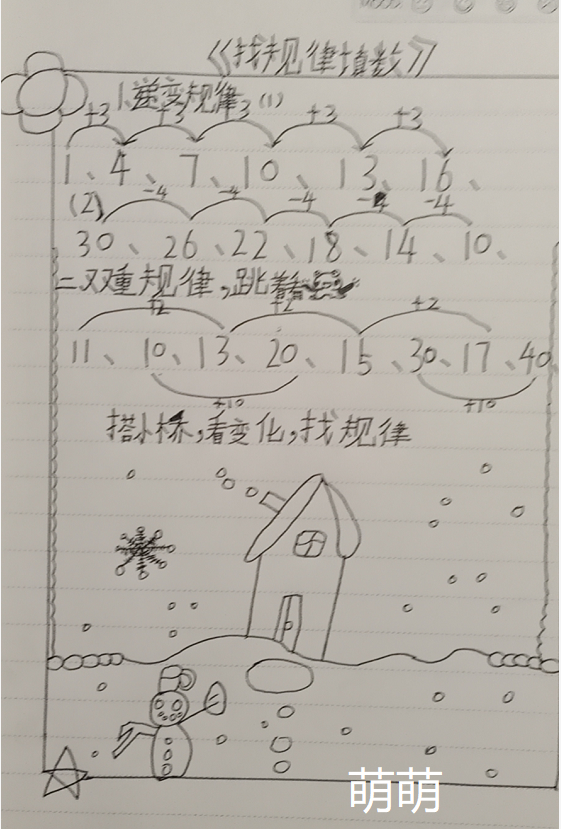 《找规律填数》
1.递变规律(1)
+3 +3 +3 +3 +3
1、4、7、10、13、16、
(2) -4 -4 -4 -4 -4
30、26、22、18、14、10、
二双重规律,跳着看
+2 +2 +2
11、10、13、20、15、30、17、40
+10 +10
搭小桥,看变化,找规律
萌萌